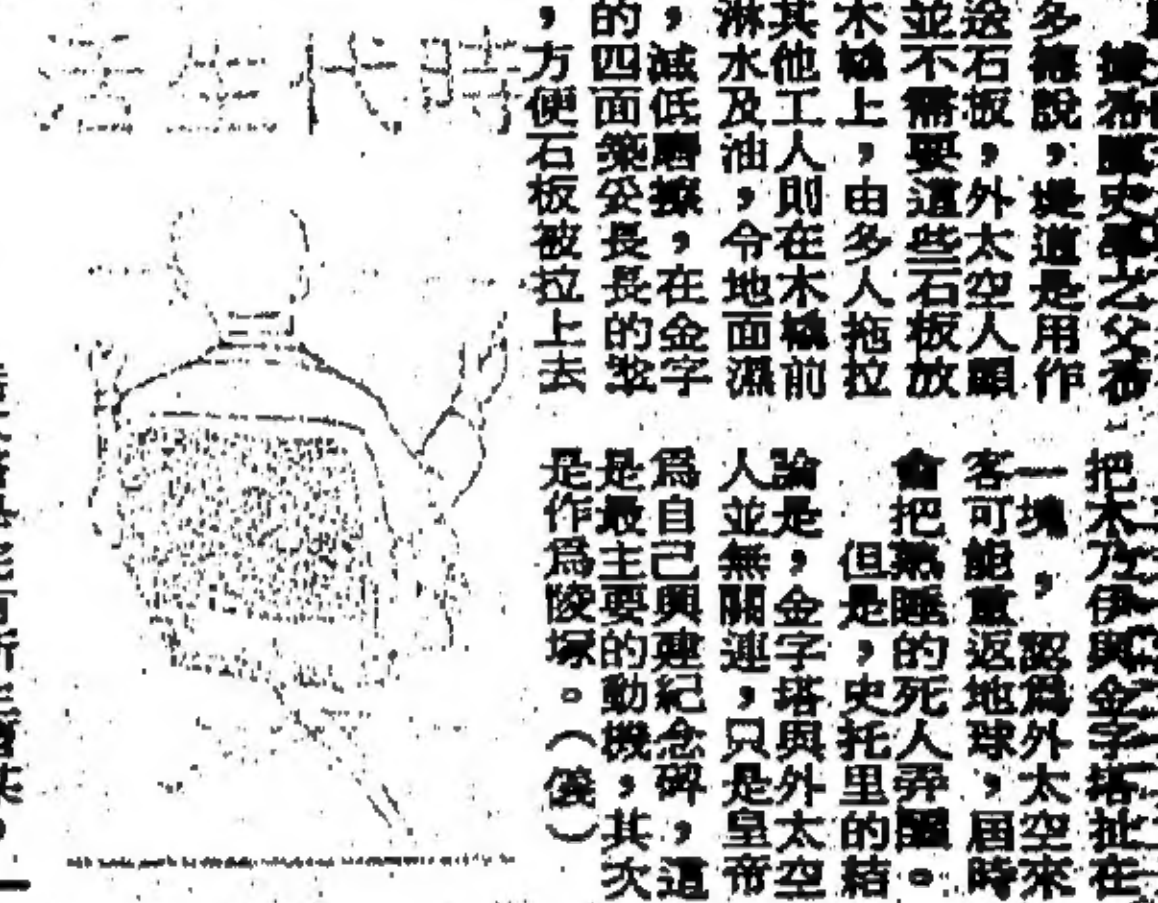 據希臘史學之父希
多德說，堤道是用作
送石板，外太空人顯
並不需要這些石板放
木橇上，由多人拖拉
其他工人則在木橇前
淋水及油，令地面濕
，減低磨擦，在金字
的四面築妥長長的
，方便石板被拉上去
把木乃伊與金字塔扯在
一塊，認爲外太空來
客可能重返地球，屆時
會把熟睡的死人弄醒。
但是，史托里的結
論是，金字塔與外太空
人並無關連，只是皇帝
爲自己興建紀念碑，這
是最主要的動機，其次
是作爲陵塚。
時代